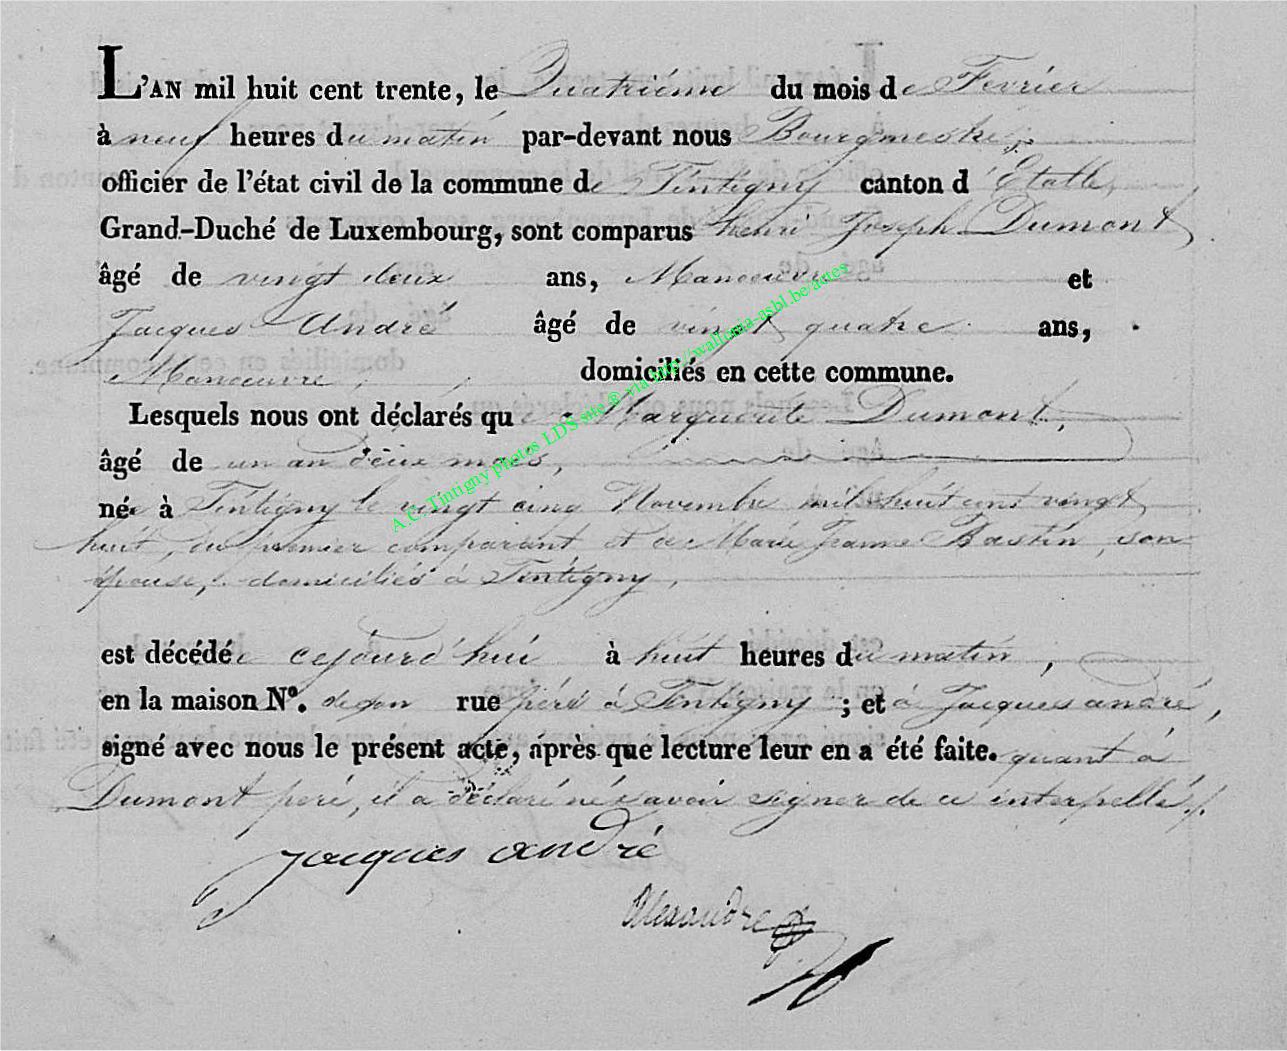 L'AN mil huit cent trente, le Quatriéme du mois de Fevrier
à neuf heures du matin par-devant nous Bourgmestre,
officier de l'état civil de la commune de Tintigny canton d'Etalle,
Grand-Duché de Luxembourg, sont comparus henri Joseph Dumont,
âgé de vingt deux ans, Manoeuvre et
Jacques André âgé de vingt quatre ans,
Manoeuvre, domiciliés en cette commune.
Lesquels nous ont déclarés que Marguerite Dumont,
âgé de un an deux mois,
née à Tintigny le vingt cinq Novembre mil huit cent vingt
huit, du premier comparant et de Marie Jeanne Bastin, son
épouse, domiciliés à Tintigny,
est décédée cejourd'hui à huit heures du matin,
en la maison N°. de son rue pere à Tintigny ; et à Jacques andré,
signé avec nous le présent acte, après que lecture leur en a été faite. quant à
Dumont peré, il a déclaré ne savoir signer de ce interpellé ./.
Jacques andré
Alexandre
A.C. Tintigny photos LDS site @ via http://wallonia-asbl.be/actes